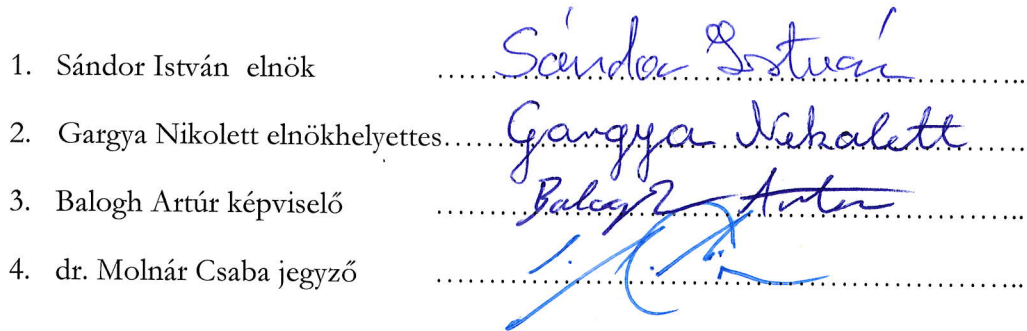 1. Sándor István elnök ........Sándor István........
2. Gargya Nikolett elnökhelyettes.....Gargya Nikolett.....
3. Balogh Artúr képviselő ........Balogh Artúr........
4. dr. Molnár Csaba jegyző ................